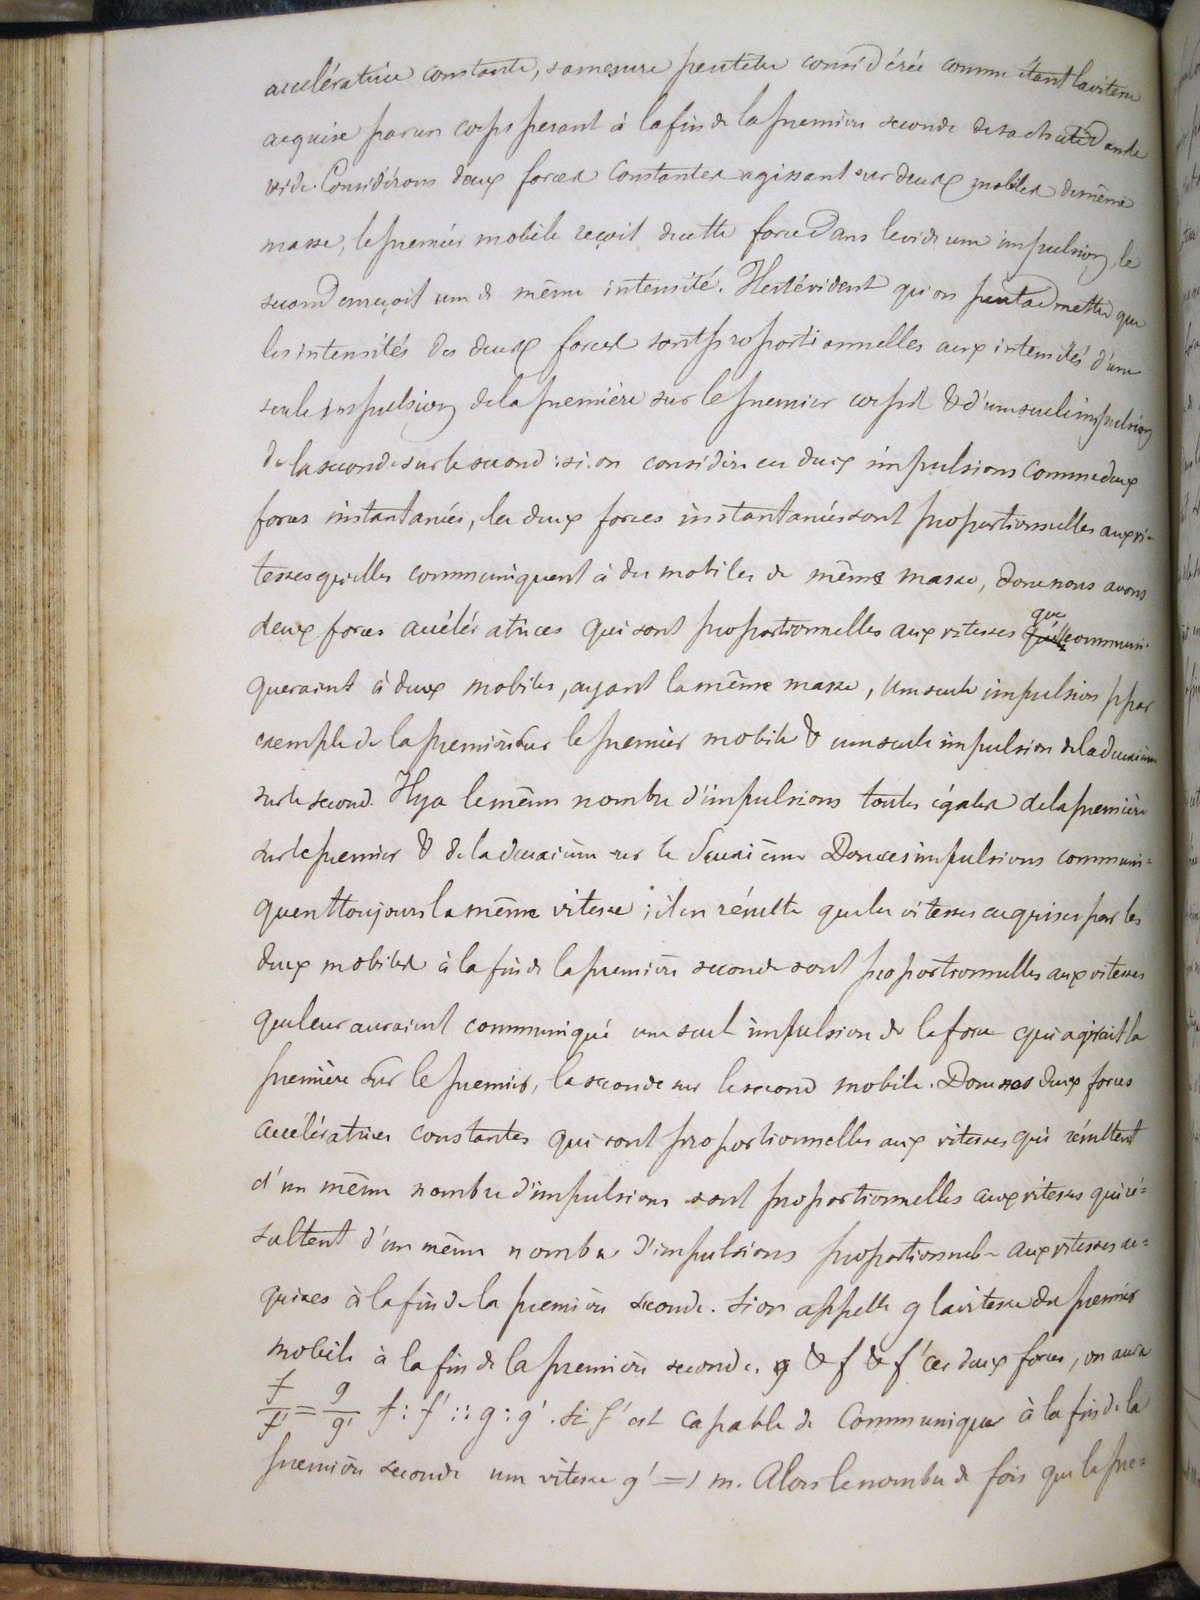 accélératrice constante, sa mesure peut être considérée comme étant la vitesse
acquise par un corps pesant à la fin de la première seconde de sa chute dans le
vide. Considérons deux forces constantes agissant sur deux mobiles de même
masse, le premier mobile reçoit de cette force dans le vide une impulsion, le
second en reçoit une de même intensité. Il est évident qu'on peut admettre que
les intensités des deux forces sont proportionnelles aux intensités d'une
seule impulsion de la première sur le premier corps & d'une seule impulsion
de la seconde sur le second : si on considère ces deux impulsions comme deux
forces instantanées, les deux forces instantanées sont proportionnelles aux vi-
tesses qu'elles communiquent à des mobiles de même masse, donc nous avons
deux forces accélératrices qui sont proportionnelles aux vitesses que communi-
queraient à deux mobiles, ayant la même masse, une seule impulsion par
exemple de la première sur le premier mobile & une seule impulsion de la deuxième
sur le second. Il y a le même nombre d'impulsions toutes égales de la première
sur le premier & de la deuxième sur le deuxième Donc ces impulsions communi=
quent toujours la même vitesse ; il en résulte que les vitesses acquises par les
deux mobiles à la fin de la première seconde sont proportionnelles aux vitesses
que leur auraient communiqué une seule impulsion de la force qui agirait la
première sur le premier, la seconde sur le second mobile. Donc nos deux forces
accélératrices constantes qui sont proportionnelles aux vitesses qui résultent
d'un même nombre d'impulsions sont proportionnelles aux vitesses qui ré=
sultent d'un même nombre d'impulsions proportionnelles aux vitesses ac=
quises à la fin de la première seconde. Si on appelle g la vitesse du premier
mobile à la fin de la première seconde, g & f & f' ces deux forces, on aura
f/f' = g/g' f : f' :: g : g'. Si f' est capable de communiquer à la fin de la
première seconde une vitesse g' = 1 m. Alors le nombre de fois que la pre=